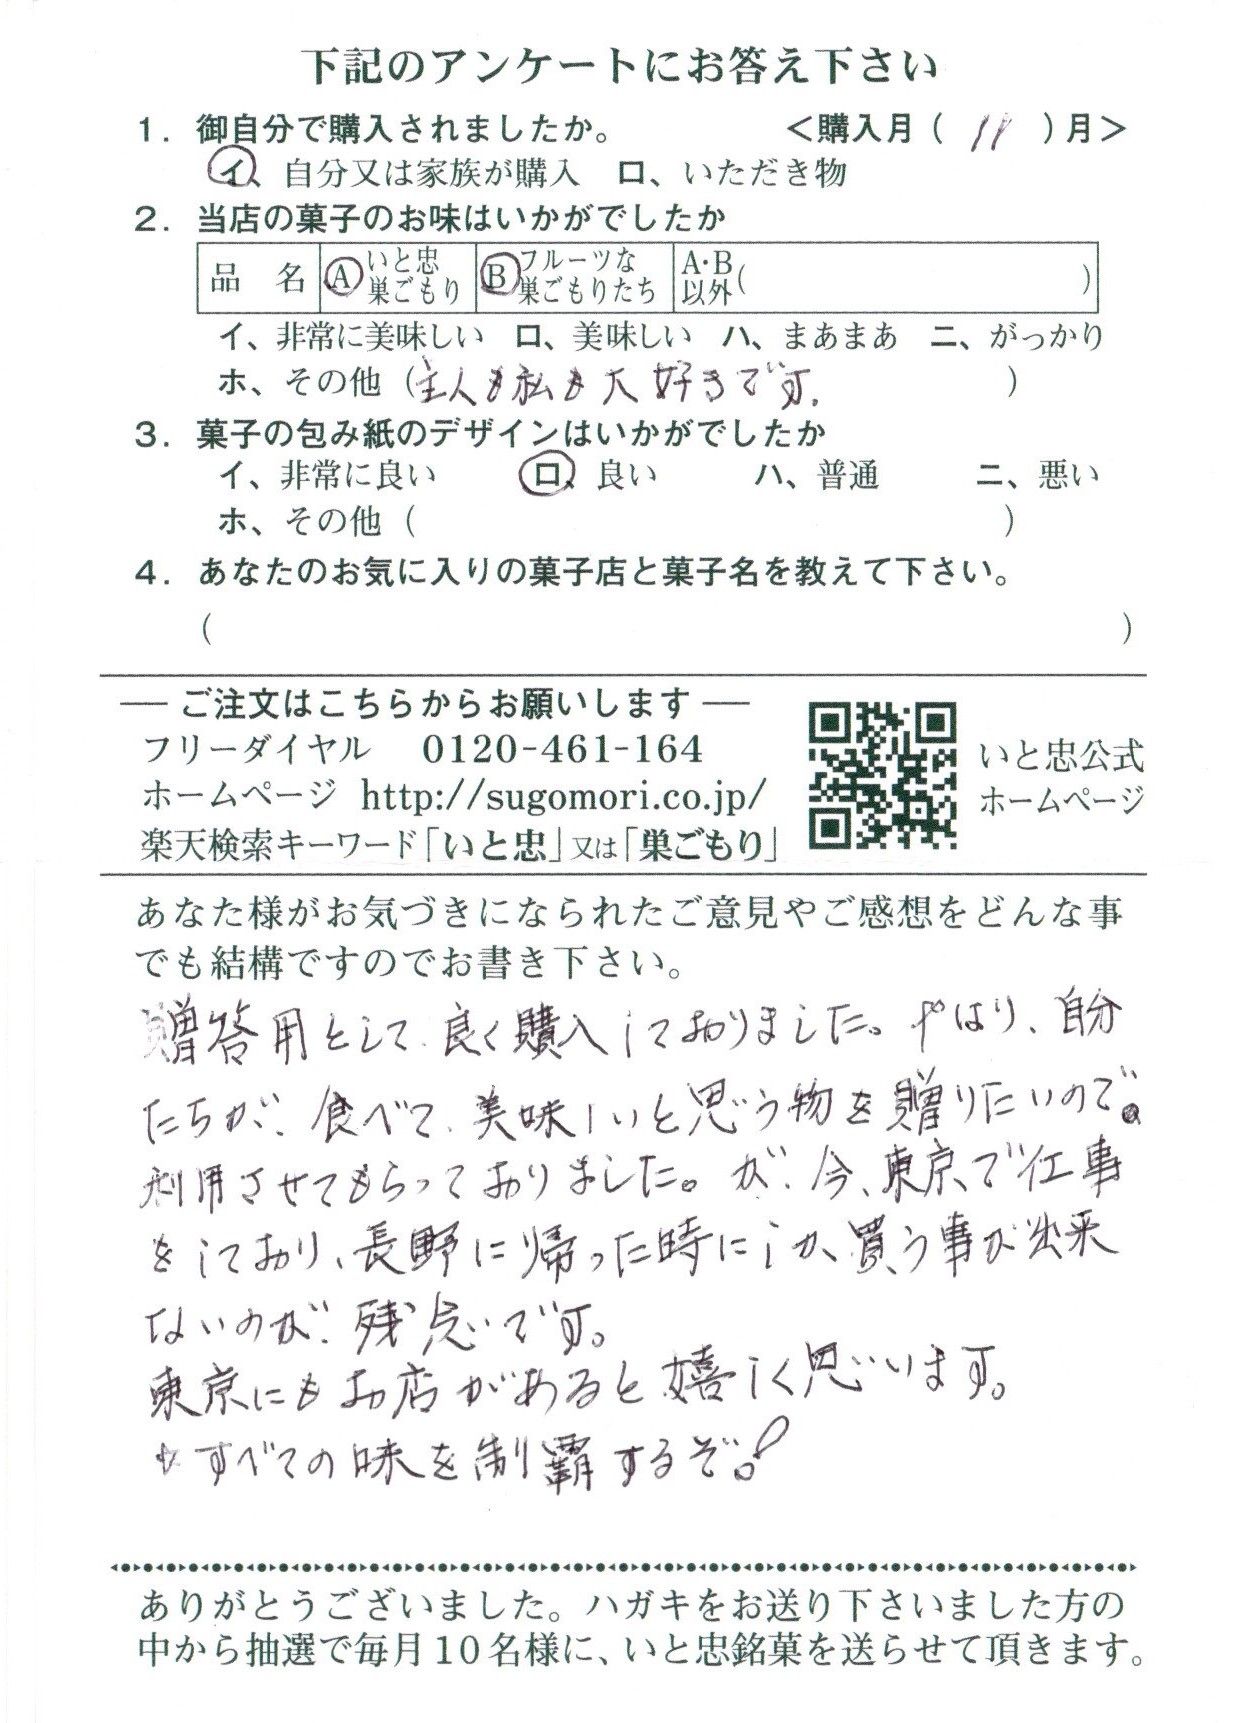 下記のアンケートにお答え下さい
1. 御自分で購入されましたか。 <購入月( 11 )月>
イ、自分又は家族が購入 ロ、いただき物
2. 当店の菓子のお味はいかがでしたか
品 名 A いと忠 巣ごもり B フルーツな 巣ごもりたち A・B 以外( )
イ、非常に美味しい ロ、美味しい ハ、まあまあ ニ、がっかり
ホ、その他(主人も私も大好きです。 )
3. 菓子の包み紙のデザインはいかがでしたか
イ、非常に良い ロ、良い ハ、普通 ニ、悪い
ホ、その他( )
4. あなたのお気に入りの菓子店と菓子名を教えて下さい。
( )
― ご注文はこちらからお願いします ―
フリーダイヤル 0120-461-164
ホームページ http://sugomori.co.jp/
楽天検索キーワード「いと忠」又は「巣ごもり」
いと忠公式
ホームページ
あなた様がお気づきになられたご意見やご感想をどんな事
でも結構ですのでお書き下さい。
贈答用として、良く購入しておりました。やはり、自分
たちが、食べて、美味しいと思う物を贈りたいので。
利用させてもらっておりました。が、今、東京で仕事
をしており、長野に帰った時にしか、買う事が出来
ないのが、残念です。
東京にもお店があると嬉しく思います。
☆すべての味を制覇するぞ!
ありがとうございました。ハガキをお送り下さいました方の
中から抽選で毎月10名様に、いと忠銘菓を送らせて頂きます。